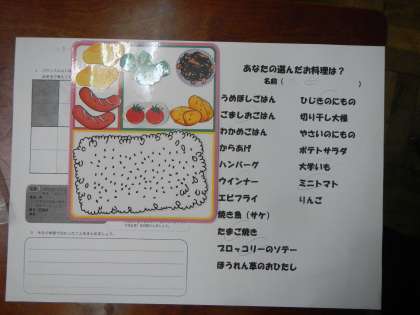 あなたの選んだお料理は？
名前（　　　　　　）
うめぼしごはん
ごましおごはん
わかめごはん
からあげ
ハンバーグ
ウインナー
エビフライ
焼き魚（サケ）
たまご焼き
ブロッコリーのソテー
ほうれん草のおひたし
ひじきのにもの
切り干し大根
やさいのにもの
ポテトサラダ
大学いも
ミニトマト
りんご